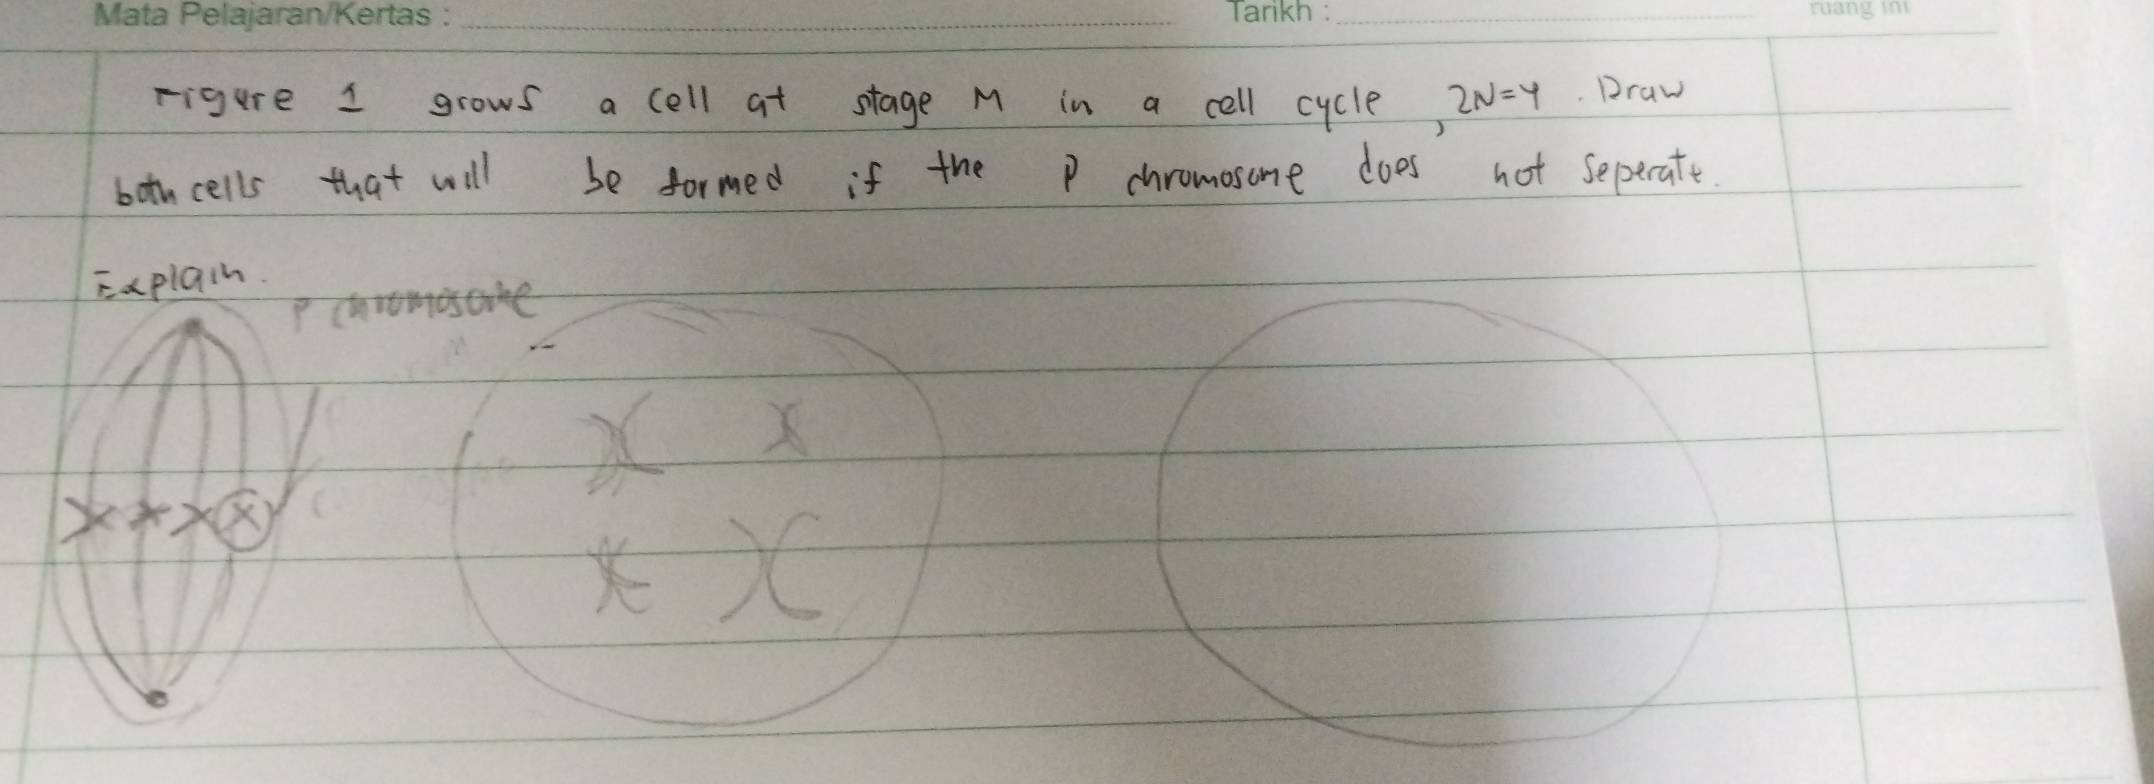 Mata Pelajaran/Kertas : Tarikh : ruang ini
Figure 1 grows a cell at stage M in a cell cycle, 2N=4. Draw
both cells that will be formed if the P chromosome does not seperate.
Explain.
P chromosome